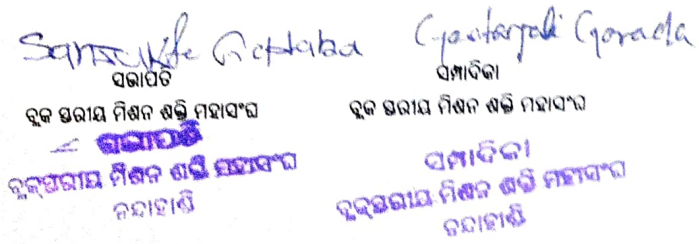 ସଭାପତି
ବ୍ଲକ ସ୍ତରୀୟ ମିଶନ ଶକ୍ତି ମହାସଂଘ
ସଭାପତି
ବ୍ଲକ୍‌ସ୍ତରୀୟ ମିଶନ ଶକ୍ତି ମହାସଂଘ
ନନ୍ଦାହାଣ୍ଡି
Gorada
ସମ୍ପାଦିକା
ବ୍ଲକ ସ୍ତରୀୟ ମିଶନ ଶକ୍ତି ମହାସଂଘ
ସମ୍ପାଦିକା
ବ୍ଲକ୍‌ସ୍ତରୀୟ ମିଶନ ଶକ୍ତି ମହାସଂଘ
ନନ୍ଦାହାଣ୍ଡି